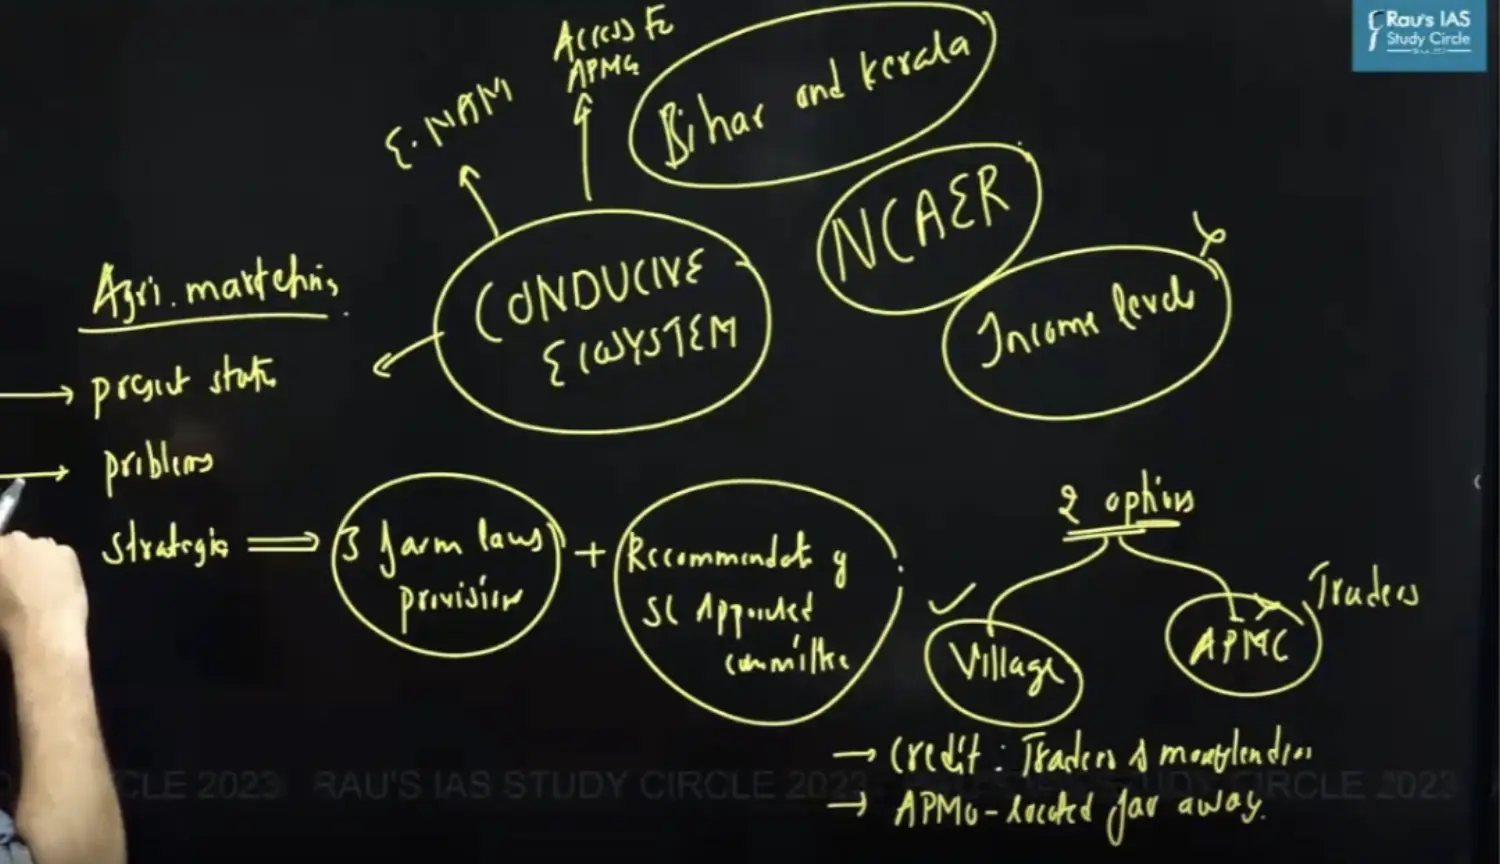 Rau's IAS
Study Circle
Access to
APMC
E-NAM
Bihar and Kerala
NCAER
Income levels
CONDUCIVE
ECOSYSTEM
Agri. marketing
present status
problems
Strategies
3 farm laws
provision
+
Recommendat of
SC Appointed
committee
2 options
Village
APMC
Traders
→ Credit: Traders & moneylenders
→ APMC - located far away.
CLE 2023 RAU'S IAS STUDY CIRCLE 2023 STUDY CIRCLE 2023